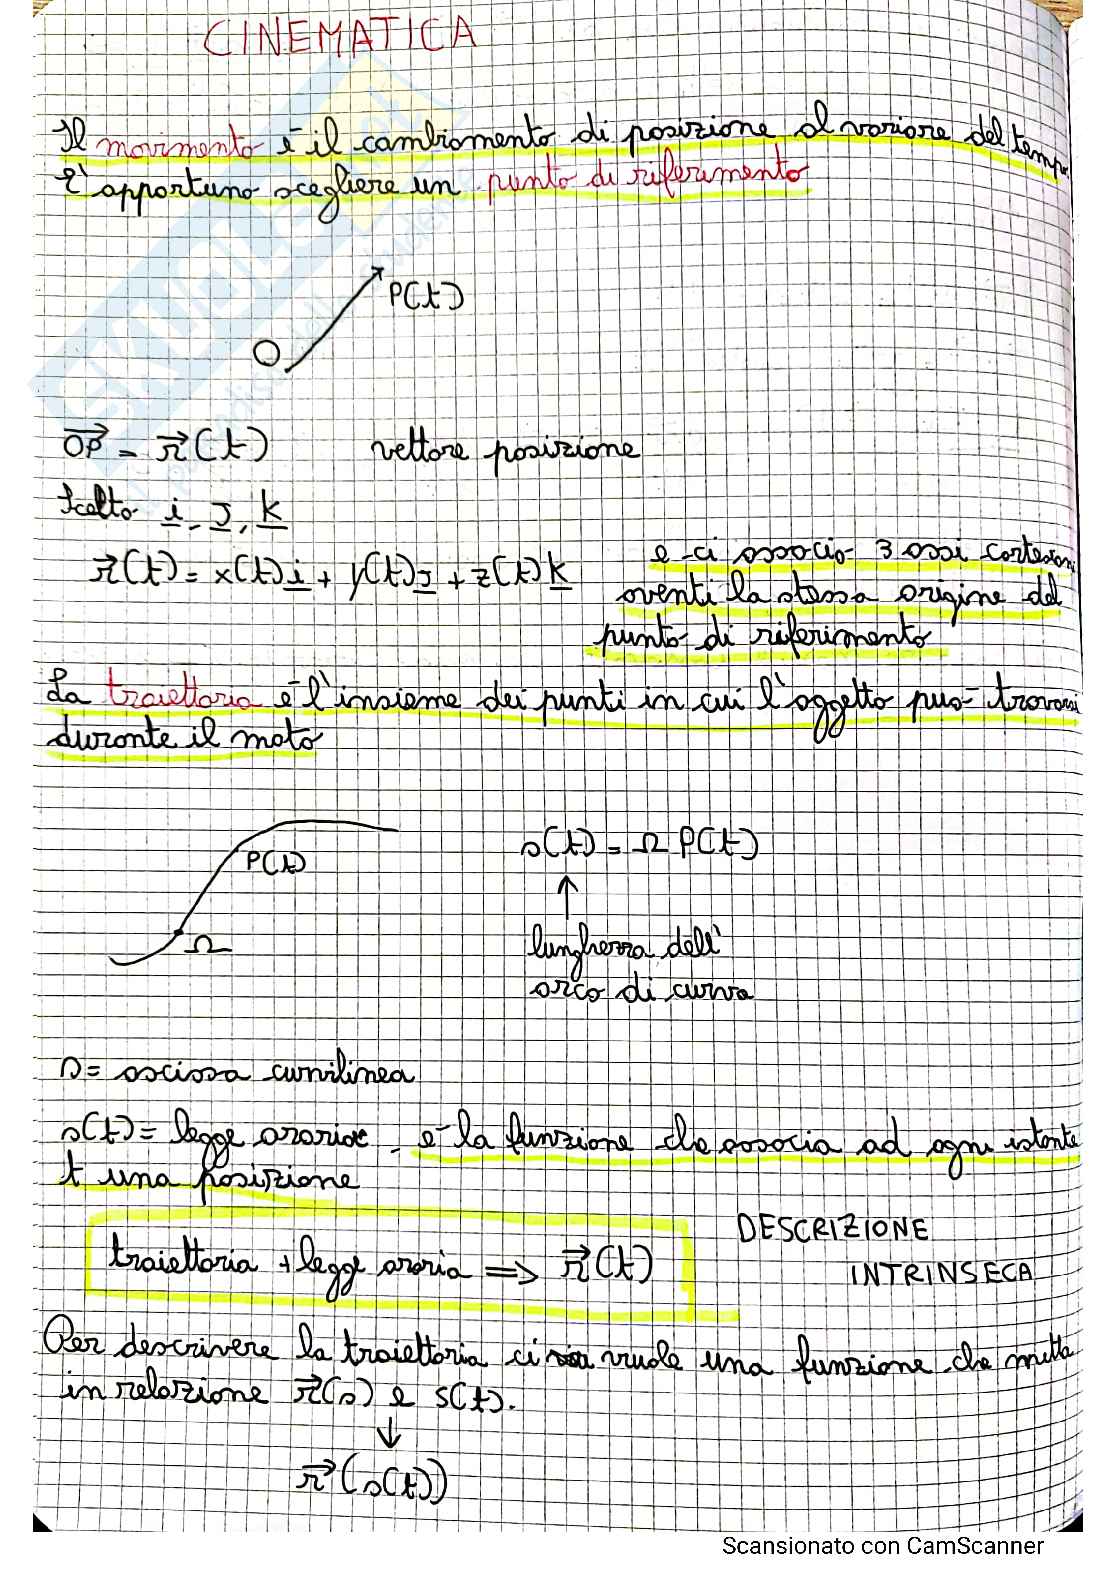 CINEMATICA
Il movimento è il cambiamento di posizione al variare del tempo
E' opportuno scegliere un punto di riferimento
P(t)
O
OP⃗ = r⃗(t) vettore posizione
Scelto i, J, k
r⃗(t) = x(t)i + y(t)J + z(t)k
e ci associo 3 assi cartesiani
aventi la stessa origine del
punto di riferimento
La traiettoria è l'insieme dei punti in cui l'oggetto può trovarsi
durante il moto
P(t)
Ω
s(t) = Ω P(t)
↑
lunghezza dell'
arco di curva
s = ascissa curvilinea
s(t) = legge oraria, è la funzione che associa ad ogni istante
t una posizione
traiettoria + legge oraria => r⃗(t)
DESCRIZIONE
INTRINSECA
Per descrivere la traiettoria ci vuole una funzione che metta
in relazione r⃗(s) e s(t).
↓
r⃗(s(t))
Scansionato con CamScanner